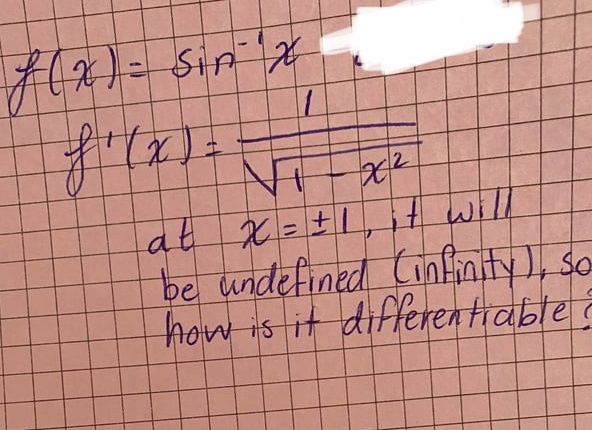 f(x) = sin⁻¹x
f'(x) = 1/√(1 - x²)
at x = ±1, it will
be undefined (infinity), so
how is it differentiable?